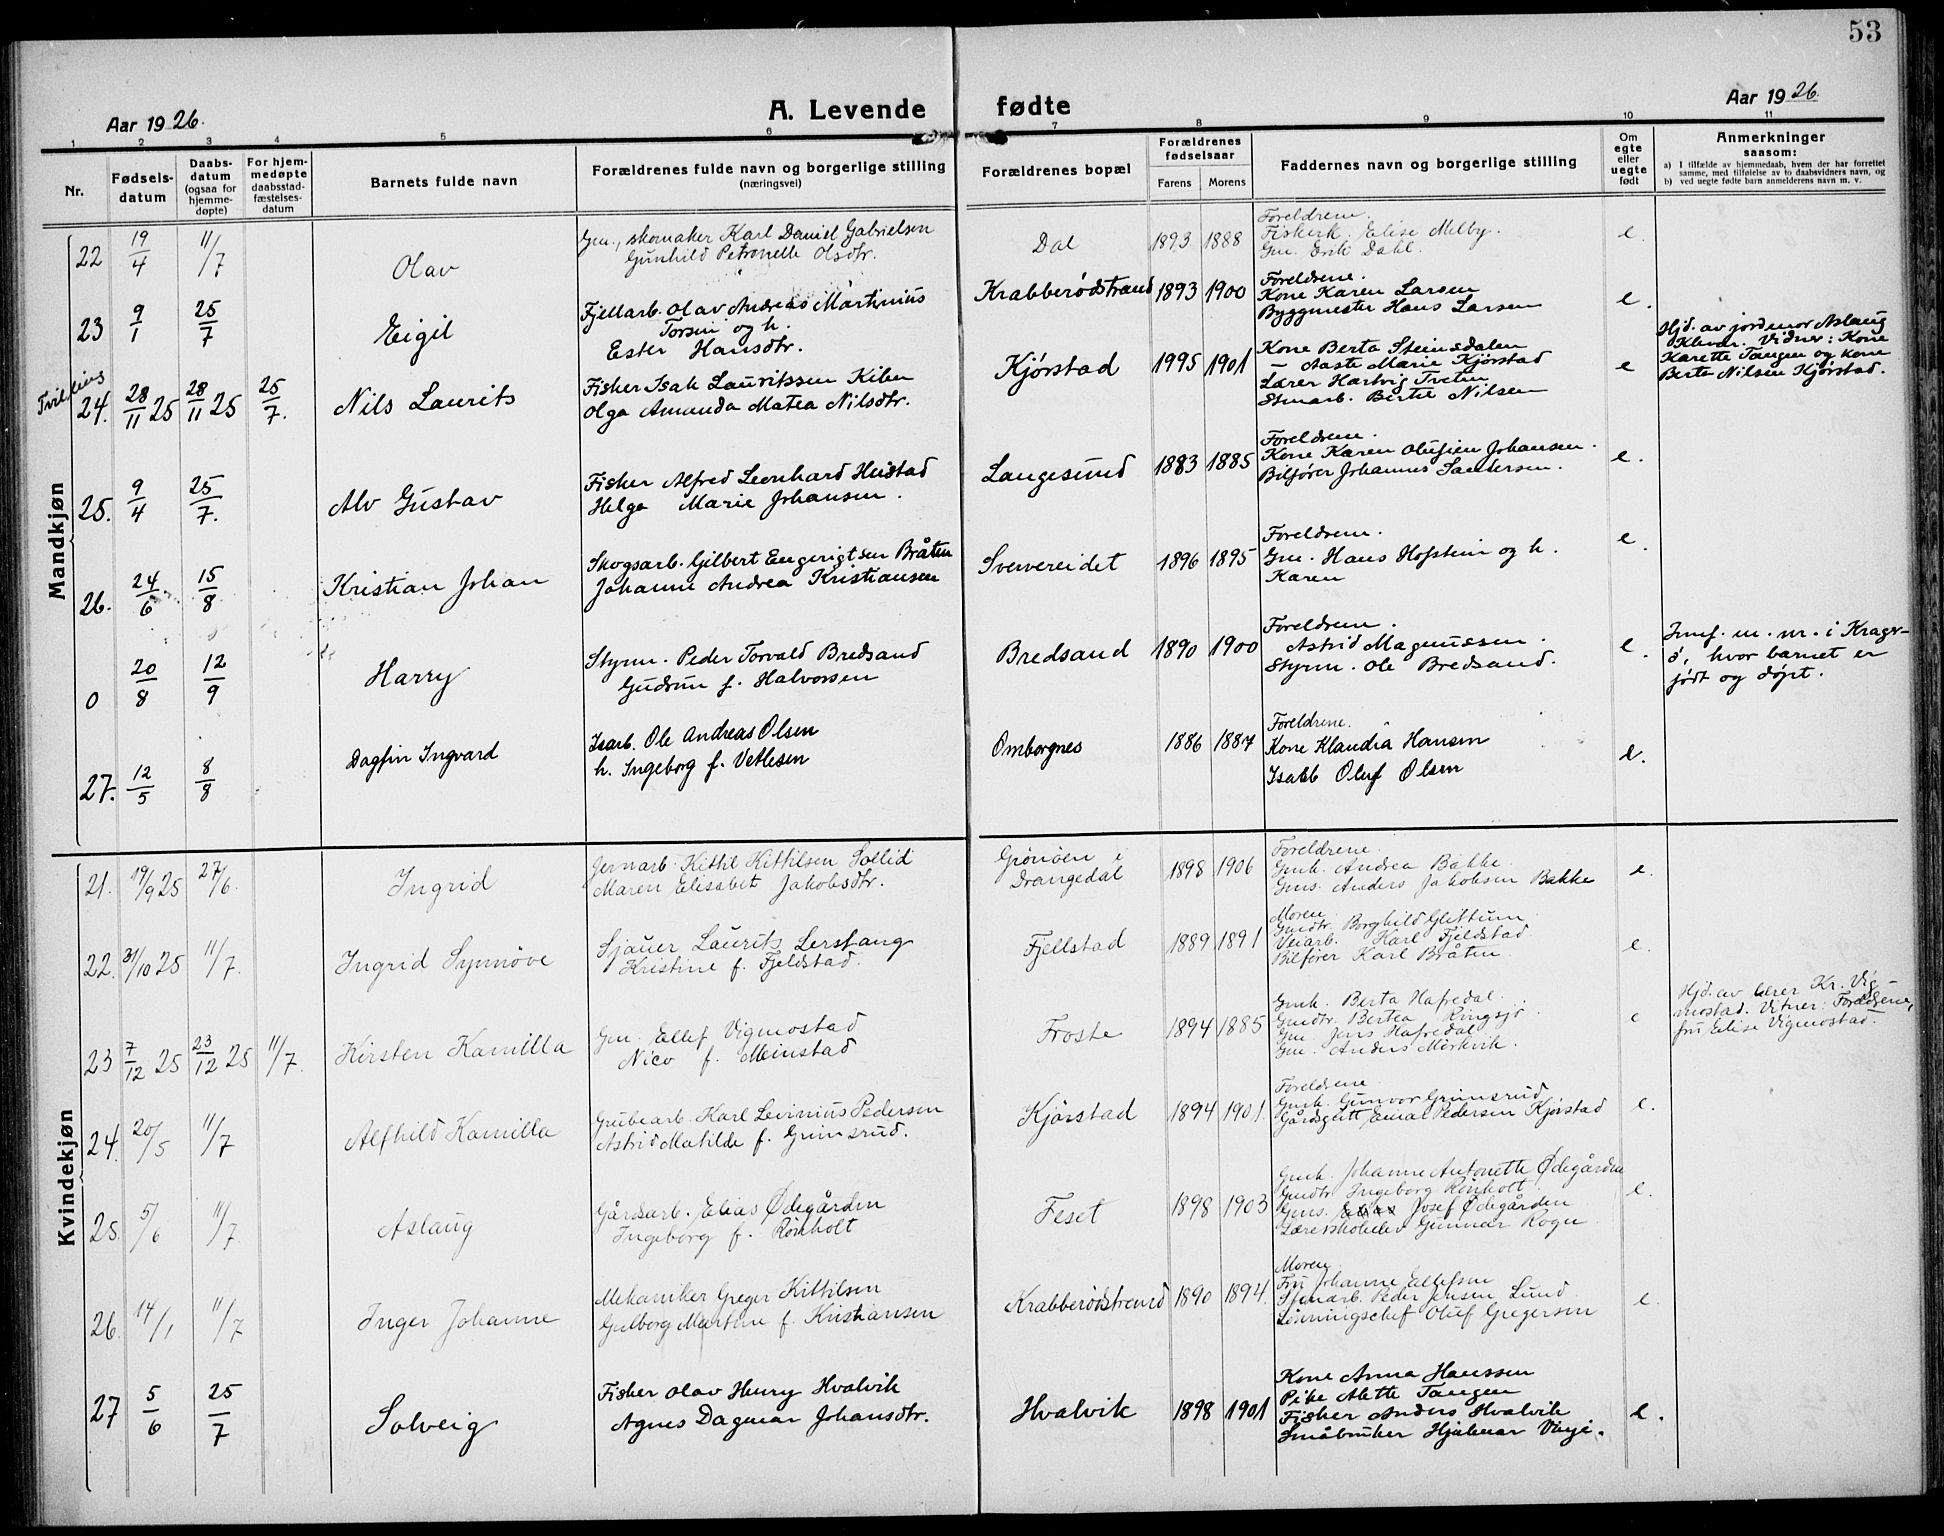 53
Aar 1926.
A. Levende fødte
Aar 1926.
1 2 3 4 5 6 7 8 9 10 11
Nr.
Fødsels-
datum
Daabs-
datum
(ogsaa for
hjemme-
døpte)
For hjem-
medøpte
daabsstad-
fæstelses-
datum
Barnets fulde navn
Forældrenes fulde navn og borgerlige stilling
(næringsvei)
Forældrenes bopæl
Forældrenes
fødselsaar
Farens Morens
Faddernes navn og borgerlige stilling
Om
egte
eller
uegte
født
Anmerkninger
saasom:
a) I tilfælde av hjemmedaab, hvem der har forrettet
samme, med tilføielse av to daabsvidners navn, og
b) ved uegte fødte barn anmelderens navn m. v.
Mandkjøn
22 19/4 11/7 Olav
Gm., skomaker Karl Daniel Gabrielsen
Gunhild Petronelle Olsdtr.
Dal 1893 1888
Foreldrene.
Elise Melby.
Gm. Erik Dahl.
e.
23 9/1 25/7 Eigil
Fjellarb. Olav Andreas Martinius
Torsen og h.
Ester Hansdtr.
Krabberødstrand 1893 1900
Foreldrene.
Kone Karen Larsen
Byggmester Hans Larsen
e.
Tvilling
24. 28/11 25 28/11 25 25/7. Nils Laurits
Fisker Isak Lauritssen Kilen
Olga Amanda Matea Nilsdtr.
Kjørstad 1995 1901
Kone Berta Steinsdalen
– Aaste Marie Kjørstad
Lærer Hartvig Tveten
Stenarb. Bertil Nilsen
e
Hjd. av jordmor Aslaug
Kleven. Vidner: Kone
Karette Tangen og kone
Berta Nilsen Kjørstad.
25. 9/4 25/7. Alv Gustav
Fisker Alfred Leonhard Heistad
Helga Marie Johansen.
Langesund 1883 1885
Foreldrene.
Kone Karen Olufine Johansen.
Bilfører Johannes Sandersen.
e.
26. 24/6 15/8 Kristian Johan
Skogsarb. Gilbert Engerigtsen Bråten
Johanne Andrea Kristiansen
Svenereidet 1896 1895
Foreldrene.
Gm. Hans Hofstein og h.
Karen
e.
0 20/8 12/9 Harry
Styrm. Peder Torvald Bredsand
Gudrun f. Halvorsen
Bredsand 1890 1900
Foreldrene.
Astrid Magnussen.
Styrm. Ole Bredsand.
e.
Innf. u. nr. i Kragr-
ø, hvor barnet er
født og døpt.
27. 12/5 8/8 Dagfin Ingvard
Isarb. Ole Andreas Olsen
h. Ingeborg f. Vetlesen
Omborgnes 1886 1887
Foreldrene.
Kone Klaudia Hansen
Isarb Oluf Olsen
e.
Kvindekjøn
21. 19/9 25 27/6. Ingrid
Jernarb. Kittil Kittilsen Sollid
Maren Elisabet Jakobsdtr.
Grønåen i
Drangedal 1898 1906
Foreldrene.
Gmk. Andrea Bakke.
Gms. Anders Jakobsen Bakke
e.
22. 31/10 25 11/7. Ingrid Synnøve
Sjauer Laurits Lerstang
Kristine f. Fjeldstad.
Fjellstad 1889 1891
Moren
Gmdtr. Borghild Glittum
Veiarb. Karl Fjeldstad
Bilfører Karl Bråten.
e.
23 7/12 25 23/12 25 11/7. Kirsten Kamilla
Gm. Ellef Vigmostad
Nico f. Meinstad
Froste 1894 1885
Gmk. Berta Hafredal.
Gmdtr. Bertea Ringsjø.
Gm. Jens Hafredal
Gm. Anders Mørkvik.
e
Hjd. av lærer Kr. Vig-
mostad. Vitner: Foreldrene,
fru Elise Vigmostad.
24. 20/5 11/7 Alfhild Kamilla
Grubearb. Karl Levinius Pedersen
Astrid Matilde f. Grimsrud.
Kjørstad 1894 1901.
Foreldrene.
Gmk. Gunvor Grimsrud
Gårdsgutt Einar Pedersen Kjørstad
e.
25. 5/6 11/7. Aslaug
Gårdsarb. Elias Ødegården
Ingeborg f. Rønholt
Feset 1898 1903
Gmk. Johanne Antonette Ødegården
Gmdtr. Ingeborg Rønholt
Gms. Josef Ødegården
Lærerskoleelev Gunnar Rogn
e.
26. 14/1 11/7 Inger Johanne
Mekaniker Greger Kittilsen
Gulborg Martine f. Kristiansen
Krabberødstrand 1890 1894.
Moren
Fru Johanne Ellefsen
Stenarb. Peder Jensen Lund.
Lønningschef Oluf Gregersen
e.
27 5/6 25/7 Solveig
Fisker Olav Henry Hvalvik
Agnes Dagmar Johansdtr.
Hvalvik 1898 1901
Kone Anna Hanssen
Pike Alette Tangen
Fisker Anders Hvalvik
Småbruker Hjalmar Vinje.
e.